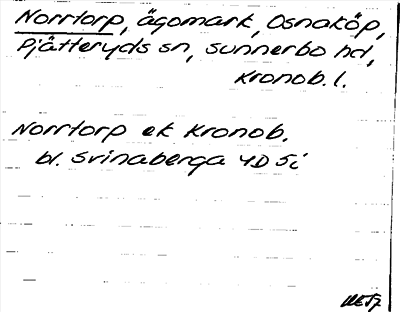 Norrtorp, ägomark, Osnaköp,
Pjätteryds sn, Sunnerbo hd,
Kronob. l.
Norrtorp ek Kronob.
bl. Svinaberga 4D 5i